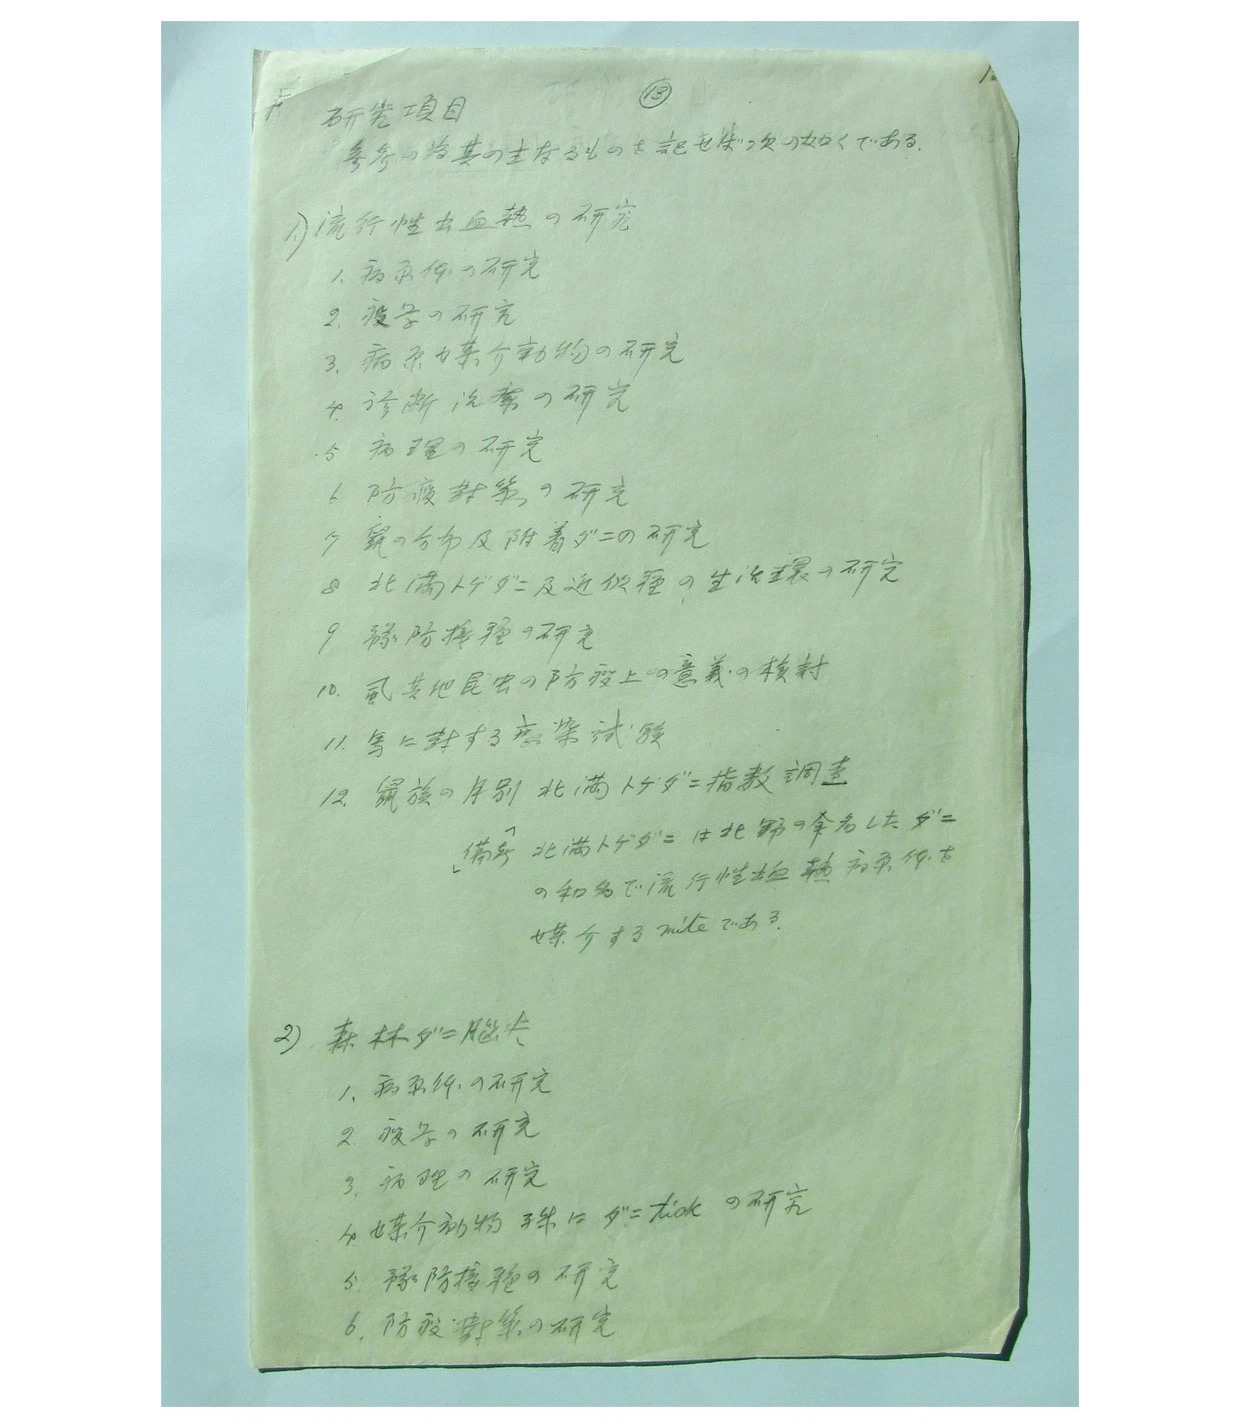 ⑬
研究項目
参考の為其の主なるものを記せば次の如くである.
1) 流行性出血熱の研究
1. 病原体の研究
2. 疫学の研究
3. 病原媒介動物の研究
4. 診断治療の研究
5 病理の研究
6 防疫対策の研究
7 鼠の分布及附着ダニの研究
8 北満トゲダニ及近似種の生活環の研究
9 予防接種の研究
10. 虱其他昆虫の防疫上の意義の検討
11. 馬に対する感染試験
12. 鼠族の月別北満トゲダニ指数調査
「備考」 北満トゲダニは北野の命名したダニ
の和名で流行性出血熱病原体を
媒介するmiteである.
2) 森林ダニ脳炎
1. 病原体の研究
2. 疫学の研究
3. 病理の研究
4. 媒介動物殊にダニtickの研究
5. 予防接種の研究
6. 防疫対策の研究